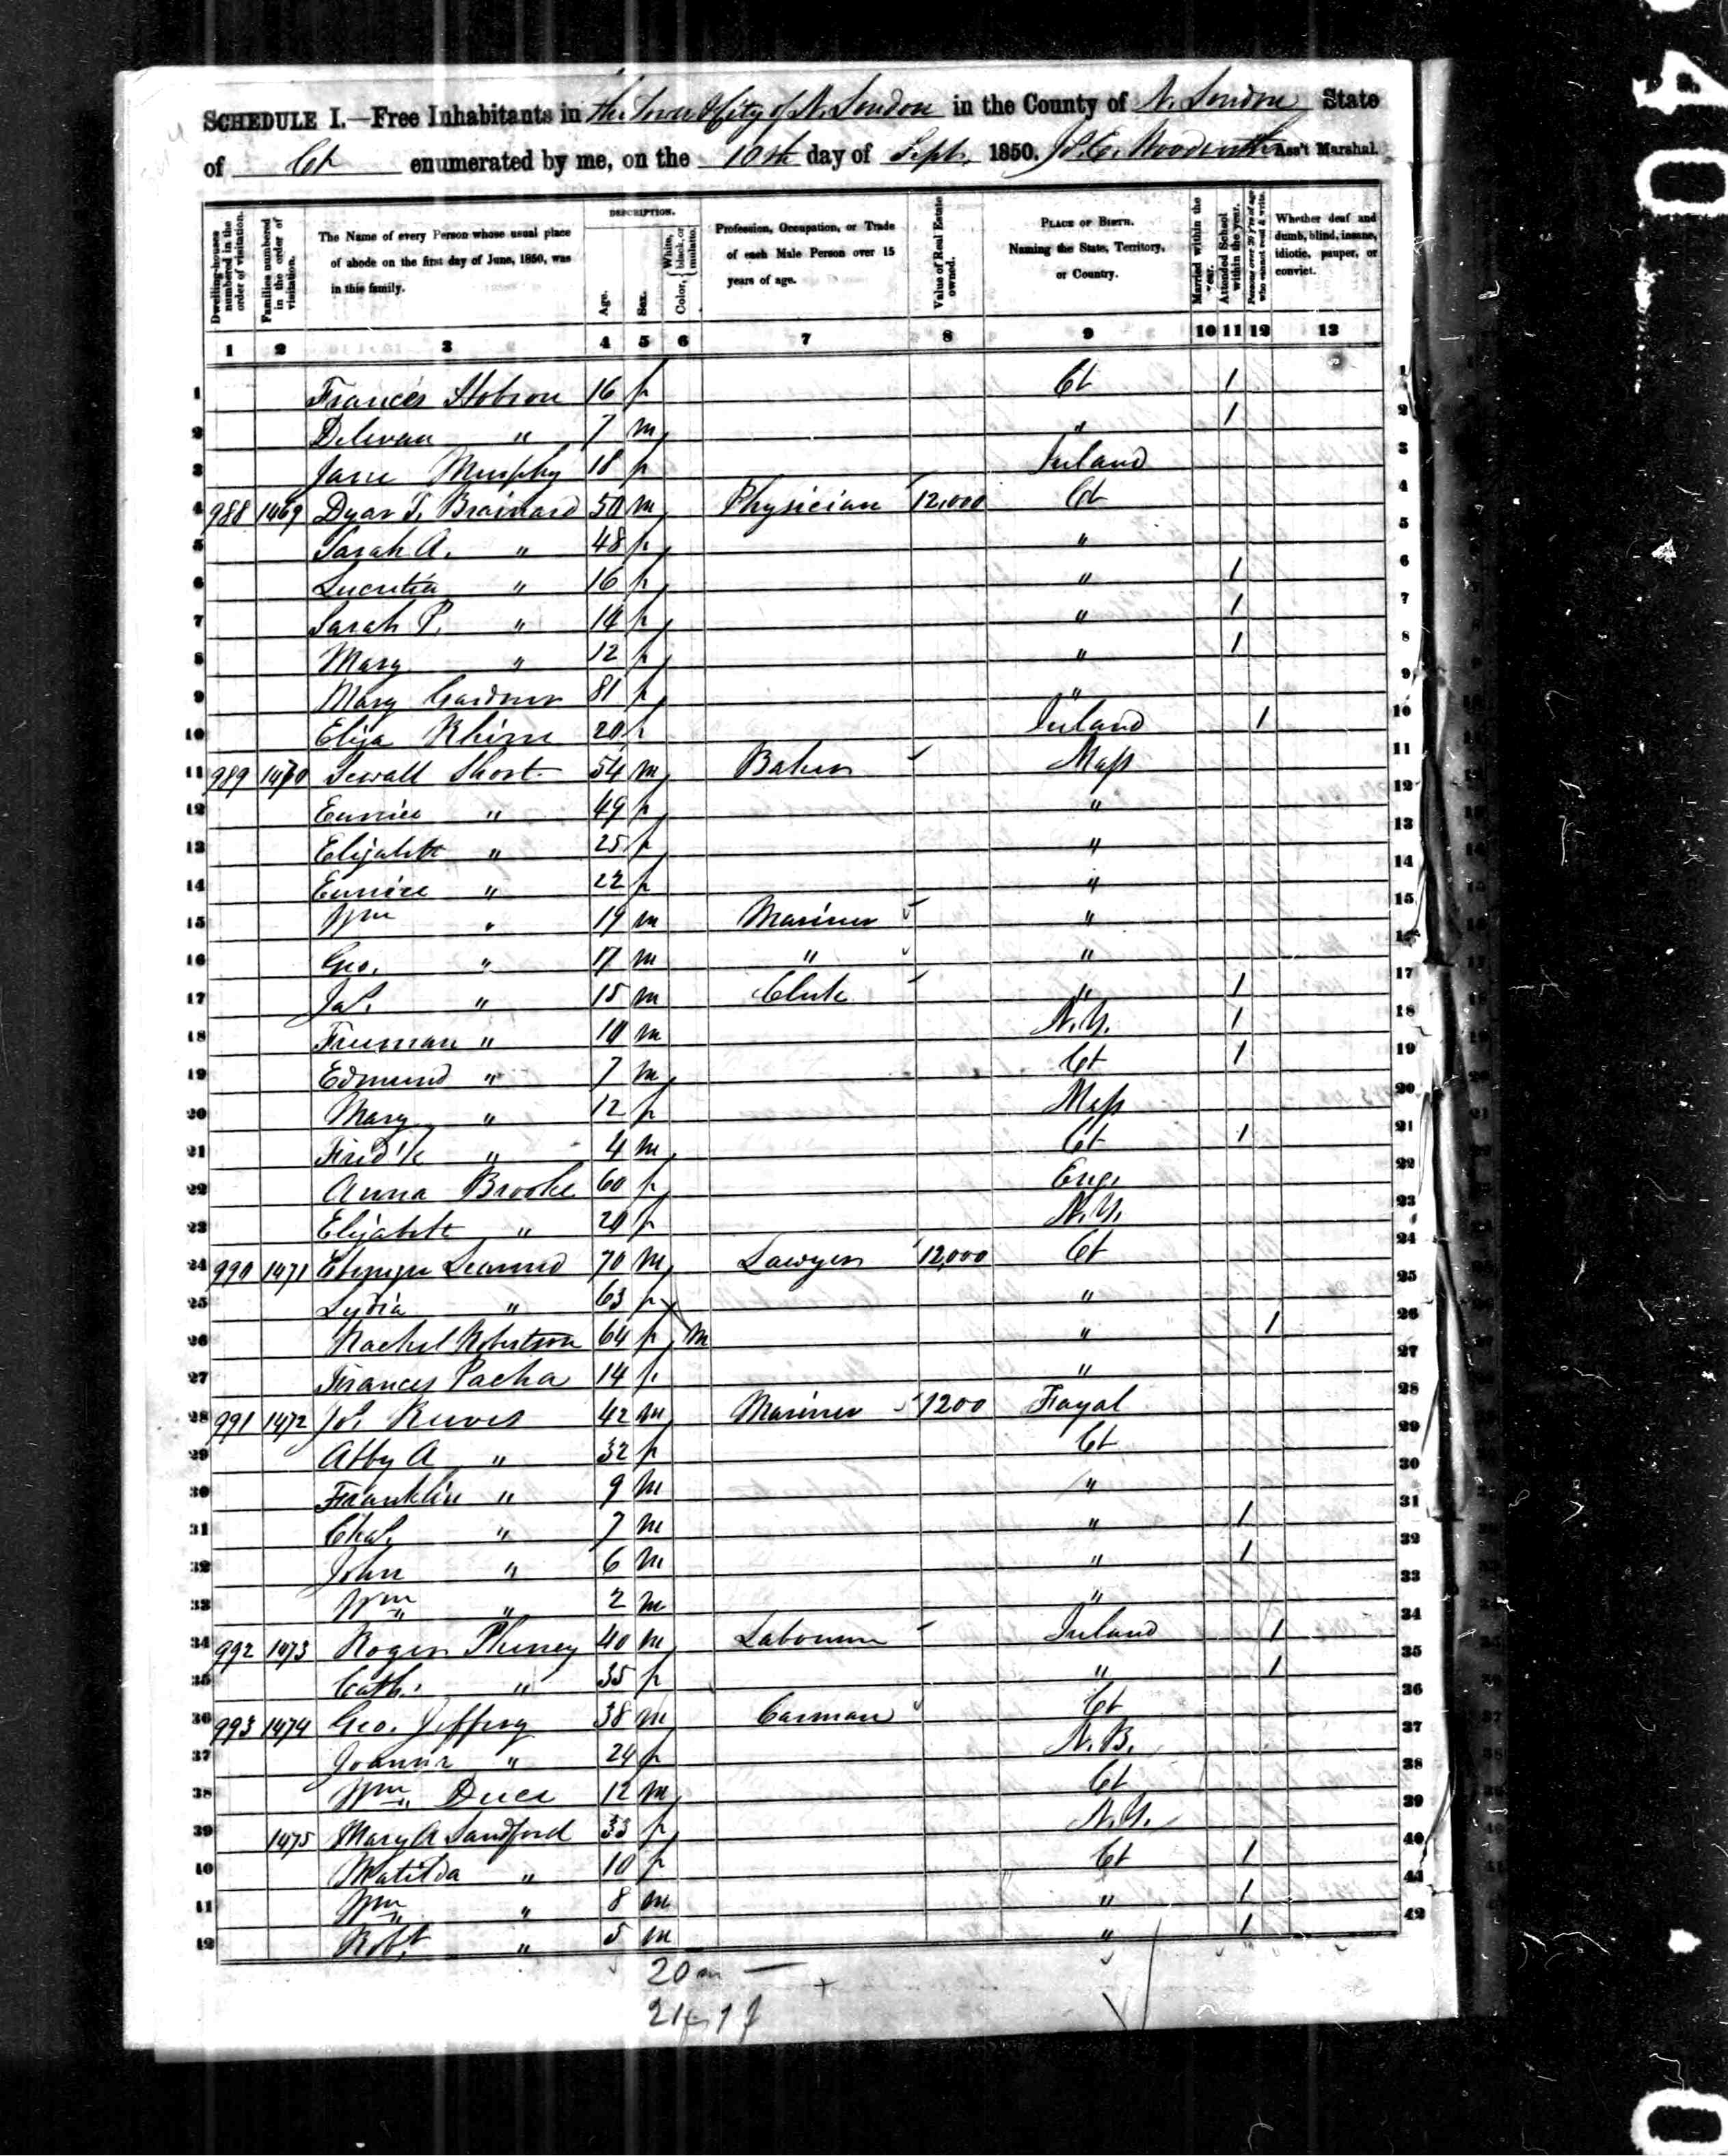 SCHEDULE I.—Free Inhabitants in the Town & City of N. London in the County of N. London State
of Ct enumerated by me, on the 10th day of Sept. 1850. Ass't Marshal.
Dwelling-houses numbered in the order of visitation.
Families numbered in the order of visitation.
The Name of every Person whose usual place of abode on the first day of June, 1850, was in this family.
DESCRIPTION.
Age.
Sex.
Color, White, black, or mulatto.
Profession, Occupation, or Trade of each Male Person over 15 years of age.
Value of Real Estate owned.
PLACE OF BIRTH. Naming the State, Territory, or Country.
Married within the year.
Attended School within the year.
Persons over 20 y'rs of age who cannot read & write.
Whether deaf and dumb, blind, insane, idiotic, pauper, or convict.
1 2 3 4 5 6 7 8 9 10 11 12 13
1 Frances Hobron 16 f Ct 1 1
2 Delevan " 7 m " 1 2
3 Jane Murphy 18 f Ireland 3
4 988 1469 Dyar T. Brainard 50 m Physician 12,000 Ct 4
5 Sarah A. " 48 f " 5
6 Lucretia " 16 f " 1 6
7 Sarah P. " 14 f " 1 7
8 Mary " 12 f " 1 8
9 Mary Gardner 81 f " 9
10 Eliza 20 f Ireland 1 10
11 989 1470 Sewall Short 54 m Baker Mass 11
12 Eunice " 49 f " 12
13 Elizabeth " 25 f " 13
14 Eunice " 22 f " 14
15 Wm " 19 m Mariner " 15
16 Geo. " 17 m " " 16
17 Jas. " 15 m Clerk " 1 17
18 Freeman " 10 m N.Y. 1 18
19 Edmund " 7 m Ct 1 19
20 Mary " 12 f Mass 20
21 Fred'k " 4 m Ct 1 21
22 Anna Brooke 60 f Eng. 22
23 Elizabeth " 20 f N.Y. 23
24 990 1471 Ebenezer Learned 70 m Lawyer 12,000 Ct 24
25 Lydia " 63 f " 25
26 Rachel Robertson 64 f M " 1 26
27 Frances Pacha 14 f " 27
28 991 1472 Jos. Reeves 42 m Mariner 1200 Fayal 28
29 Abby A " 32 f Ct 29
30 Franklin " 9 m " 30
31 Chas. " 7 m " 1 31
32 John " 6 m " 1 32
33 Wm " 2 m " 33
34 992 1473 Roger 40 m Labourer Ireland 1 34
35 Cath. " 35 f " 1 35
36 993 1474 Geo. Jeffrey 38 m Carman Ct 36
37 Joanna " 24 f N.B. 37
38 Wm Duce 12 m Ct 38
39 1475 Mary A Sandford 33 f N.Y. 39
40 Matilda " 10 f Ct 1 40
41 Wm " 8 m " 1 41
42 Robt " 5 m " 1 42
20 m